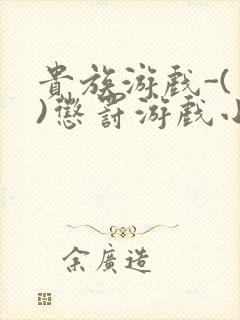 貴族游戲-(
)懲罰游戲小
余廣造